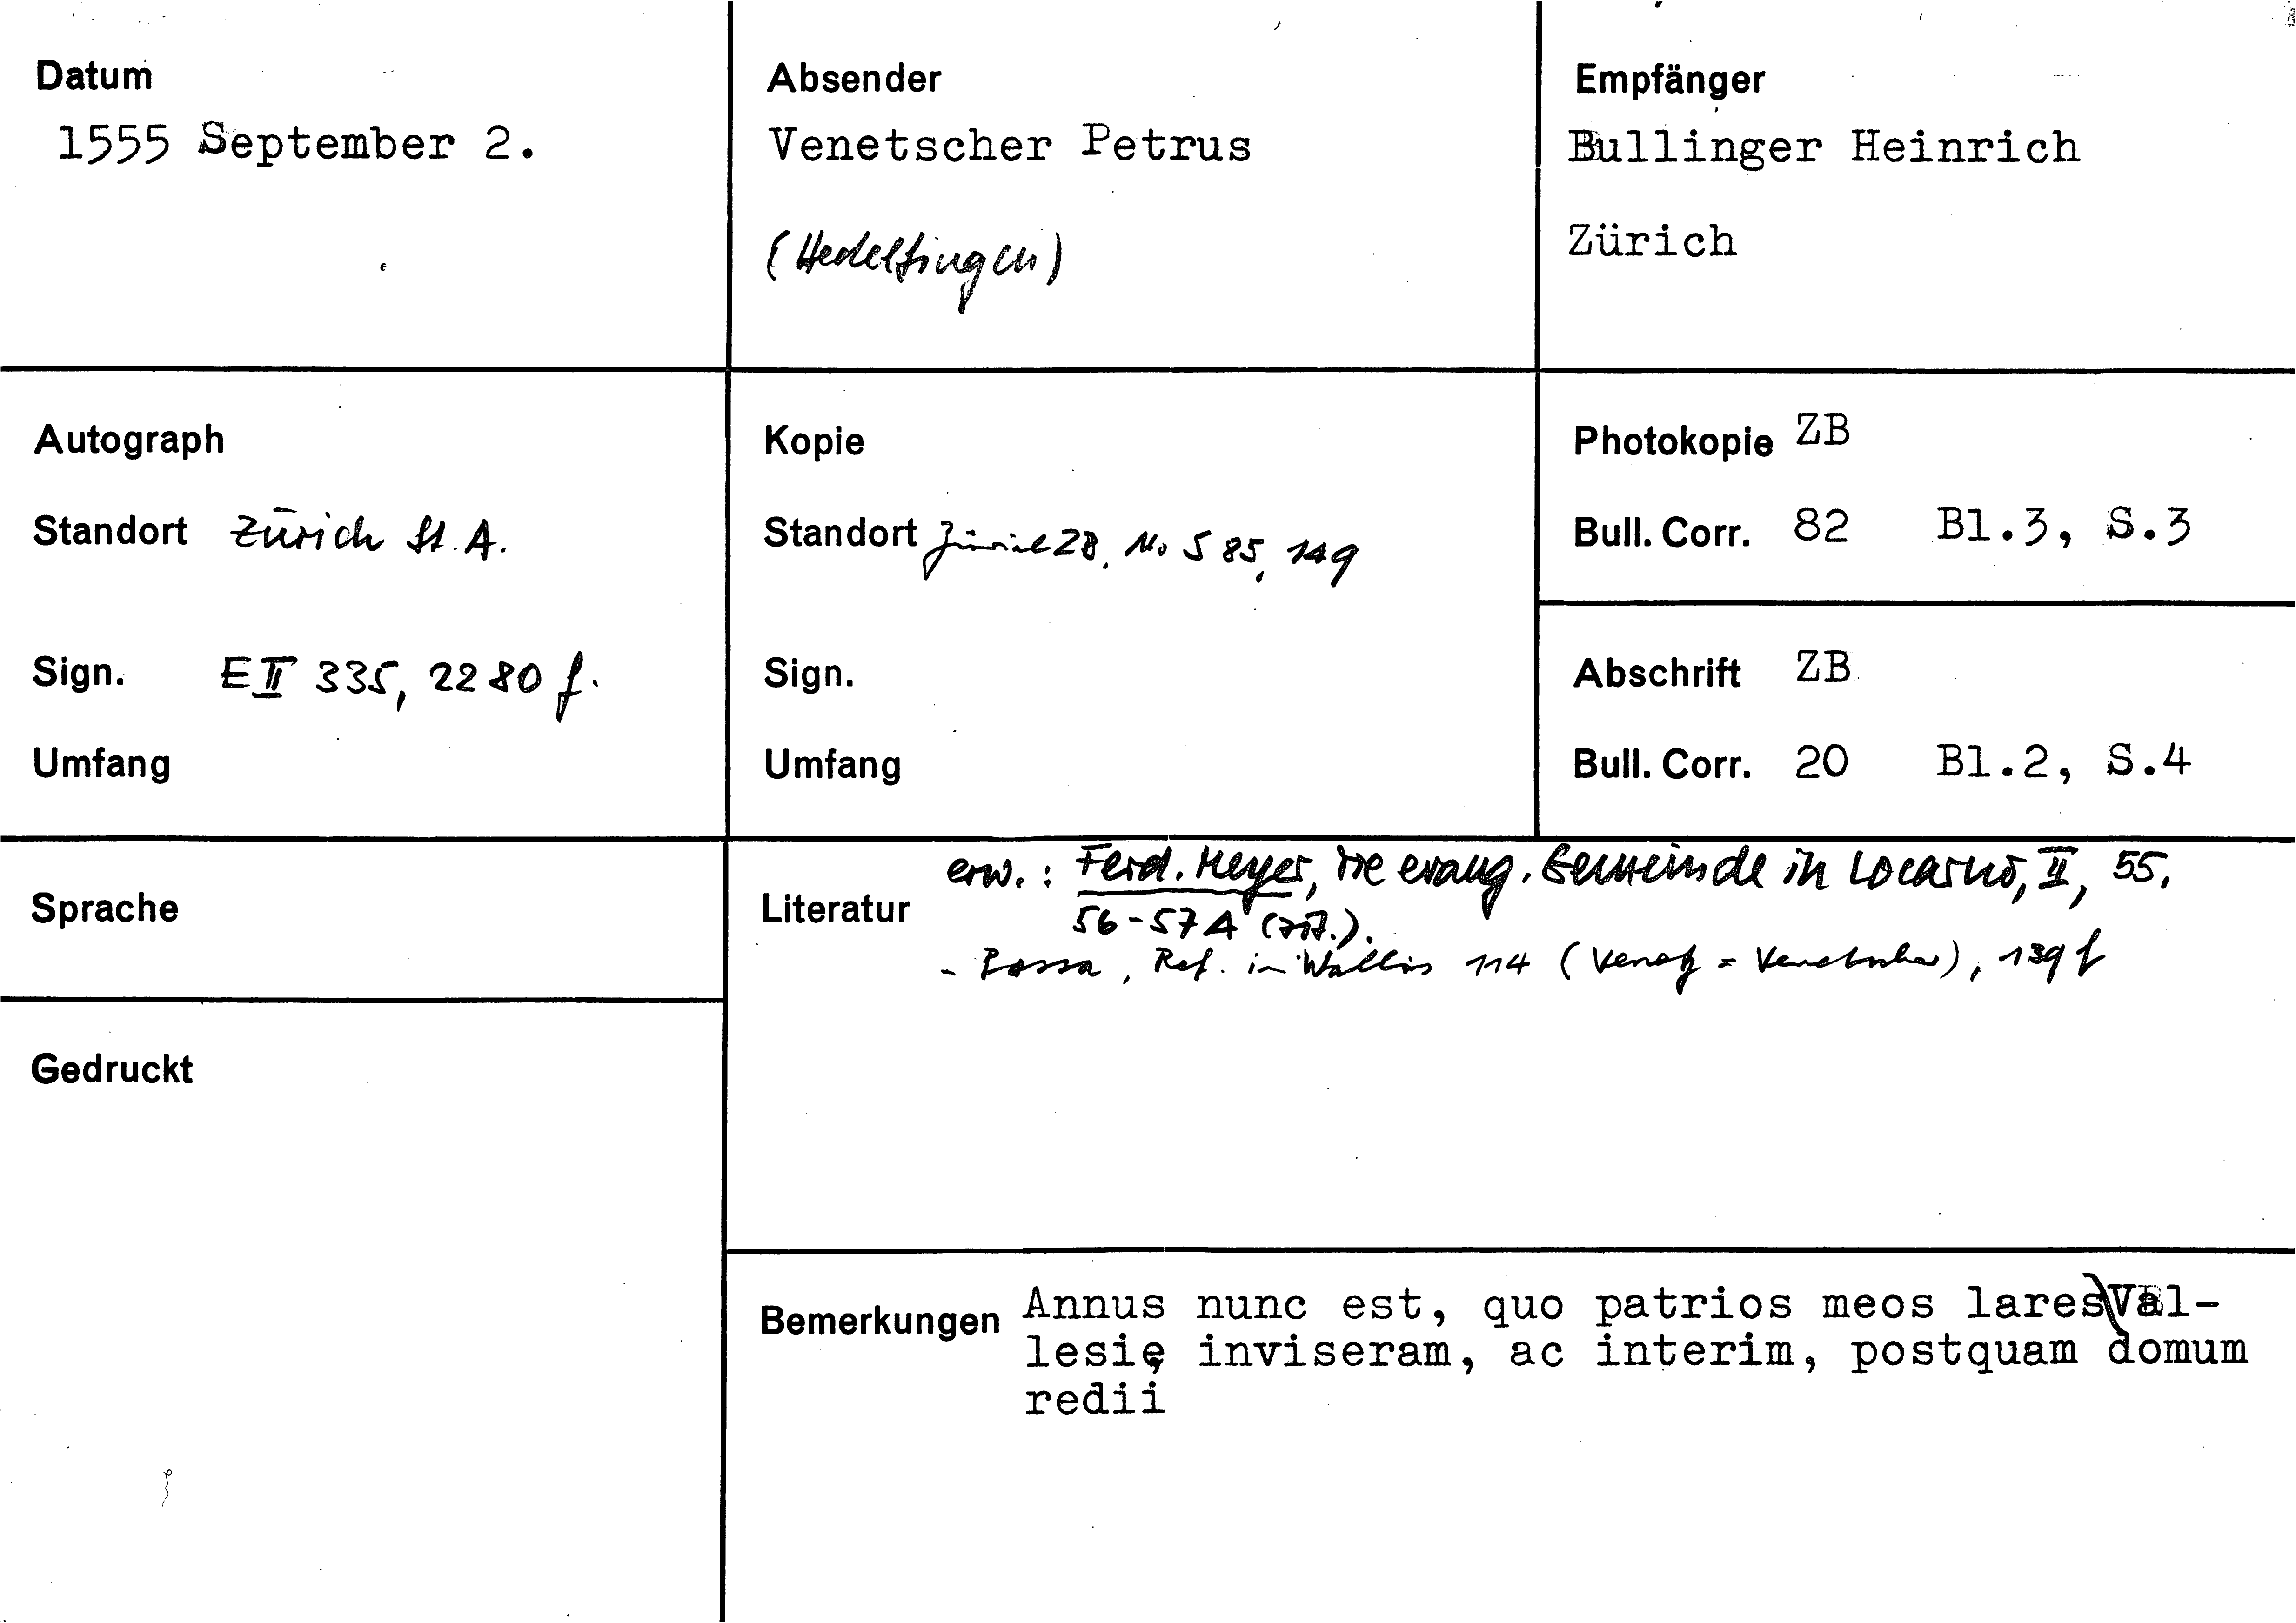 Datum
1555 September 2.
Absender
Venetscher Petrus
(Hedelfingen)
Empfänger
Bullinger Heinrich
Zürich
Autograph
Standort Zürich St. A.
Sign. E II 335, 2280 f.
Umfang
Kopie
Standort Zürich ZB, Ms S 85, 149
Sign.
Umfang
Photokopie ZB
Bull. Corr. 82 Bl.3, S.3
Abschrift ZB
Bull. Corr. 20 Bl.2, S.4
Sprache
Gedruckt
Literatur erw.: Ferd. Meyer, Die evang. Gemeinde in Locarno, II, 55,
56-57 A (zit.).
- Possa, Ref. im Wallis 114 (Venetz = Venetscher), 139 f
Bemerkungen Annus nunc est, quo patrios meos lares Val-
lesię inviseram, ac interim, postquam domum
redii